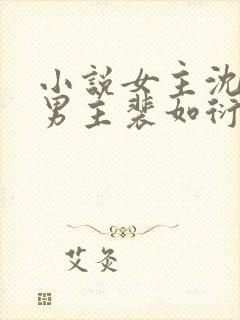 小說女主沈
男主裴如衍
艾灸